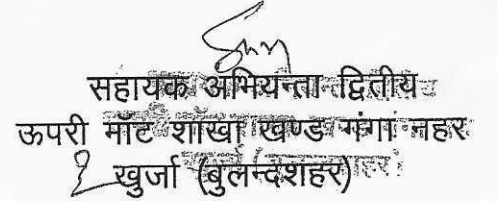 सहायक अभियन्ता द्वितीय
ऊपरी माँट शाखा खण्ड गंगा नहर
खुर्जा (बुलन्दशहर)